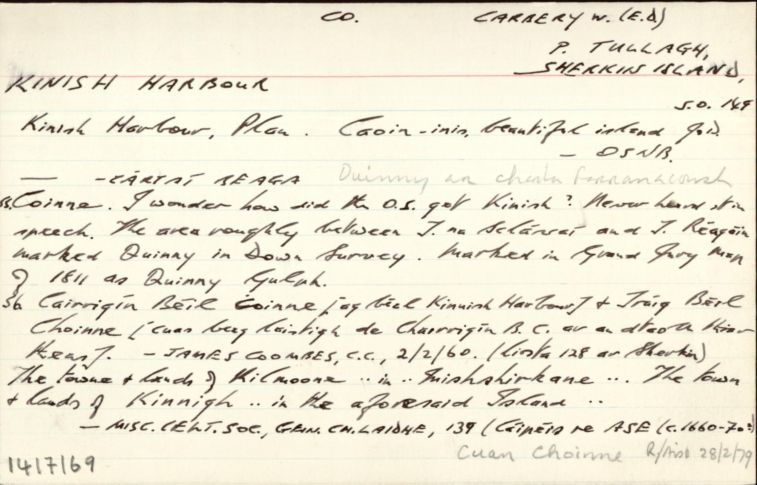 CO. CARBERY W. (E.D)
P. TULLAGH,
SHERKIN ISLAND,
KINISH HARBOUR
S.O. 149
Kinish Harbour, Plan. Caoin-inis, beautiful island
— OSNB.
— -CÁRTAÍ BEAGA Quinny an charta Farranacoush
Coinne. I wonder how did the O.S. get Kinish? Never heard it in
speech. The area roughly between T. na and T. Réagáin
marked Quinny in Down Survey. Marked in Grand Jury Map
of 1811 as Quinny Gulph.
56 Cairrigín Béil Coinne [ag béal Kinnish Harbour] & Tráig Béil
Choinne [cuas beag laistigh de Chairrigín B.C. ar an dtaobh thiar
theas]. — JAMES COOMBES, C.C., 2/2/60. (Liosta 128 ar Sherkin)
The towne & lands of Kilmoone .. in .. Inishshirkane ... The town
& lands of Kinnigh .. in the aforesaid Island ..
— MISC. CELT. SOC., GEIN. CH. LAIDHE, 139 (Cáipéis re ASE (c. 1660-70?)
Cuan Choinne 28/2/79
1417/69